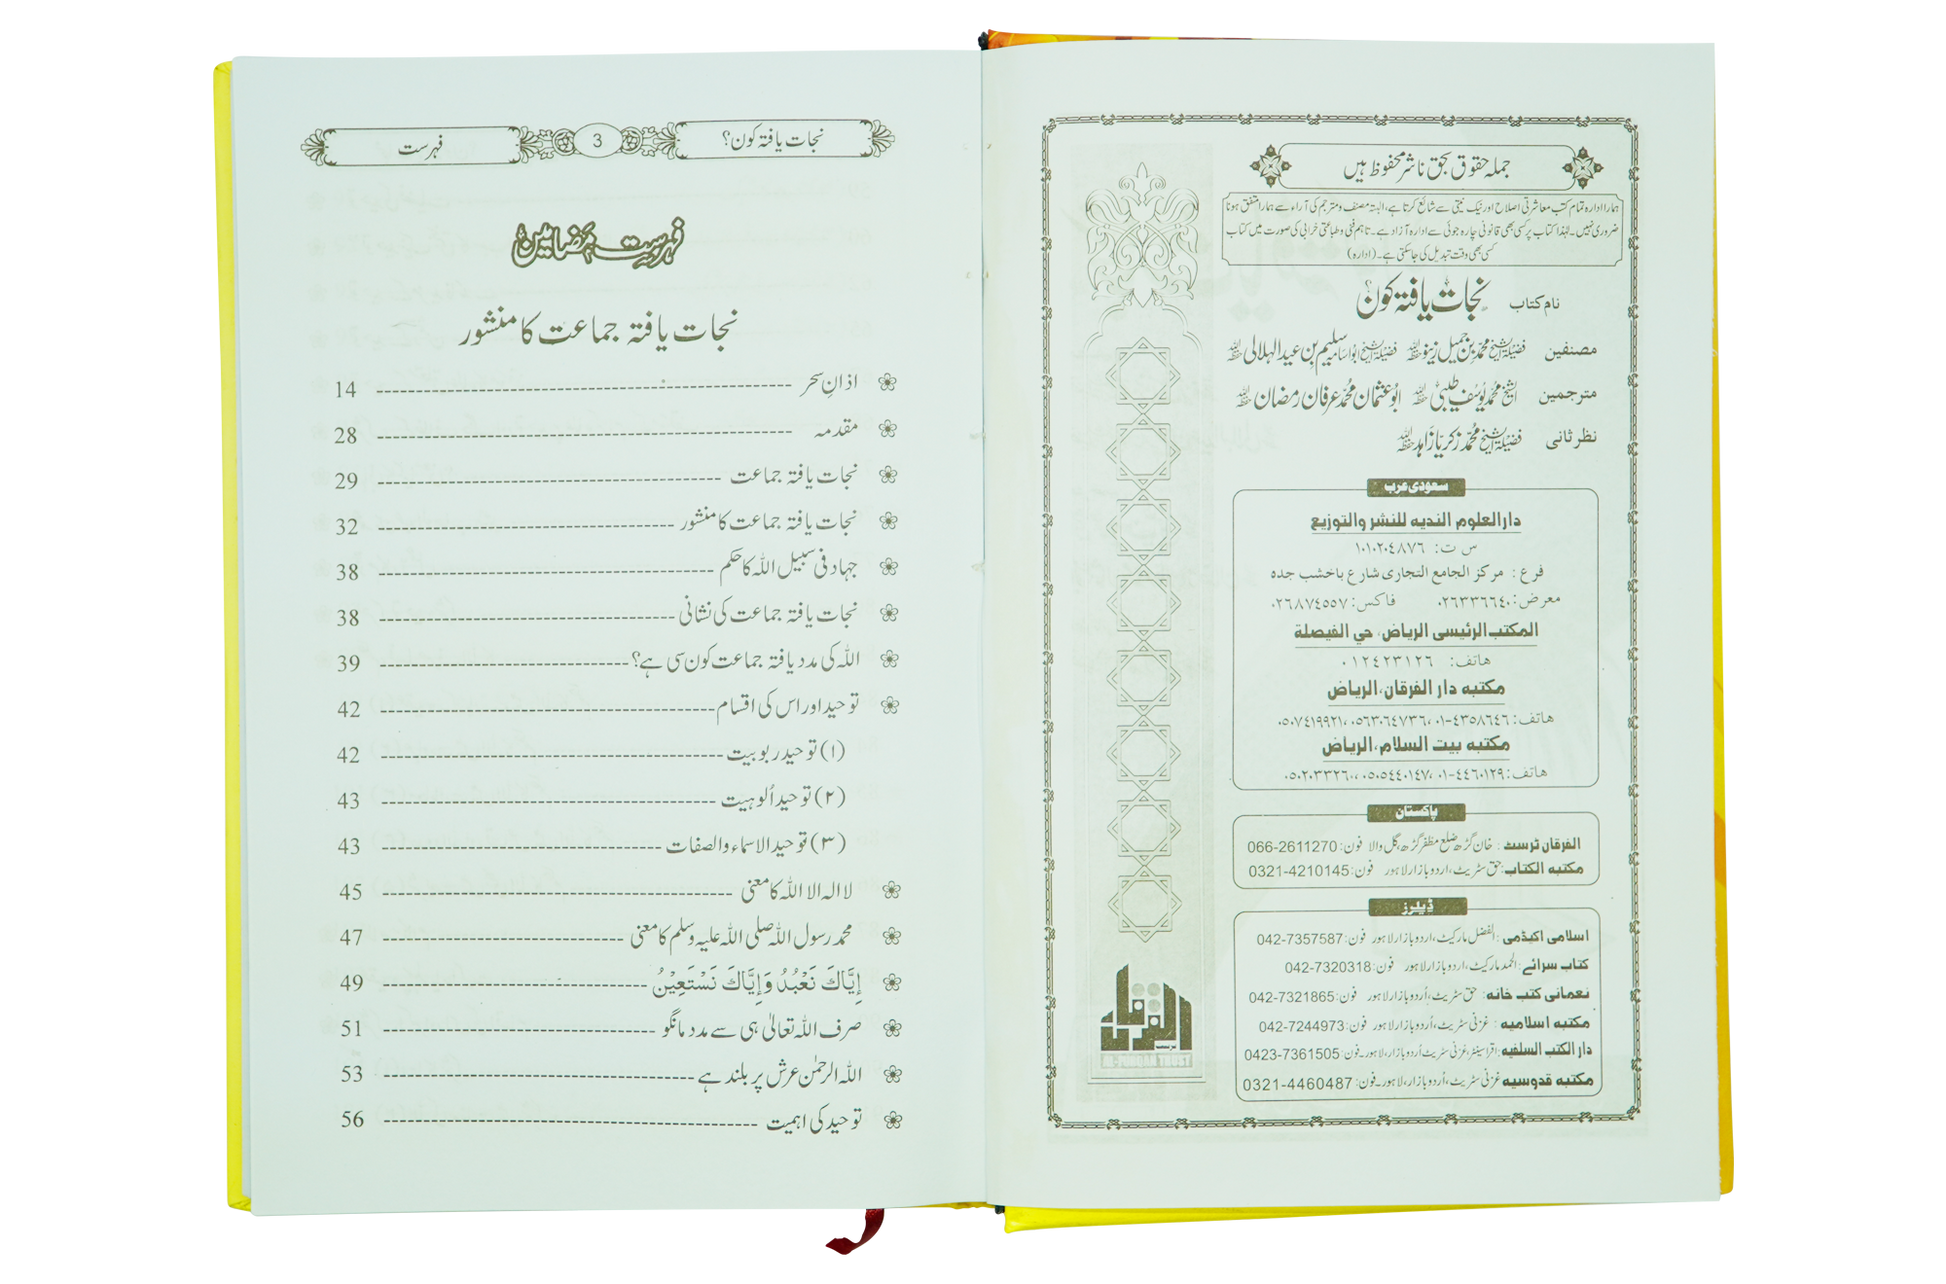 جملہ حقوق بحق ناشر محفوظ ہیں
ہمارا ادارہ تمام کتب معاشرتی اصلاح اور نیک نیتی سے شائع کرتا ہے، البتہ مصنف و مترجم کی آراء سے ہمارا متفق ہونا
ضروری نہیں۔ لہٰذا کتاب پر کسی بھی قانونی چارہ جوئی سے ادارہ آزاد ہے۔ تاہم فنی و طباعتی خرابی کی صورت میں کتاب
کسی بھی وقت تبدیل کی جاسکتی ہے۔ (ادارہ)
نام کتاب نجات یافتہ کون؟
مصنفین فضیلۃ الشیخ محمد بن جمیل زینو حفظہ اللہ فضیلۃ الشیخ ابو اسامہ سلیم بن عید الہلالی حفظہ اللہ
مترجمین الشیخ محمد یوسف طیبی حفظہ اللہ ابو عثمان محمد عرفان رمضان حفظہ اللہ
نظر ثانی فضیلۃ الشیخ محمد زکریا زاہد حفظہ اللہ
سعودی عرب
دارالعلوم الندیہ للنشر والتوزیع
س ت: ١٠١٠٢٠٤٨٧٦
فرع: مرکز الجامع التجاری شارع باخشب جدہ
معرض: ٠٢٦٣٣٦٦٤٠ فاکس: ٠٢٦٨٧٤٥٥٧
المکتب الرئیسی الریاض، حي الفیصلة
هاتف: ٠١٢٤٢٣١٢٦
مکتبه دار الفرقان، الریاض
هاتف: ٠١-٤٣٥٨٦٤٦، ٠٥٦٣٠٦٤٧٣٦، ٠٥٠٧٤١٩٩٢١
مکتبه بیت السلام، الریاض
هاتف: ٠١-٤٤٦٠١٢٩، ٠٥٠٥٤٤٠١٤٧، ٠٥٠٢٠٣٣٢٦٠
پاکستان
الفرقان ٹرسٹ: خان گڑھ ضلع مظفر گڑھ، گل والا فون: 066-2611270
مکتبہ الکتاب: حق سٹریٹ، اردو بازار لاہور فون: 0321-4210145
ڈیلرز
اسلامی اکیڈمی: الفضل مارکیٹ، اردو بازار لاہور فون: 042-7357587
کتاب سرائے: الحمد مارکیٹ، اردو بازار لاہور فون: 042-7320318
نعمانی کتب خانہ: حق سٹریٹ، اُردو بازار لاہور فون: 042-7321865
مکتبہ اسلامیہ: غزنی سٹریٹ، اُردو بازار لاہور فون: 042-7244973
دار الکتب السلفیہ: اقرا سینٹر، غزنی سٹریٹ اُردو بازار، لاہور۔ فون: 0423-7361505
مکتبہ قدوسیہ غزنی سٹریٹ، اُردو بازار، لاہور۔ فون: 0321-4460487
الفرقان
ٹرسٹ
AL-FURQAN TRUST
نجات یافتہ کون؟ 3 فہرست
فہرست مضامین
نجات یافتہ جماعت کا منشور
اذانِ سحر 14
مقدمہ 28
نجات یافتہ جماعت 29
نجات یافتہ جماعت کا منشور 32
جہاد فی سبیل اللہ کا حکم 38
نجات یافتہ جماعت کی نشانی 38
اللہ کی مدد یافتہ جماعت کون سی ہے؟ 39
توحید اور اس کی اقسام 42
(۱) توحید ربوبیت 42
(۲) توحید اُلوہیت 43
(۳) توحید الاسماء والصفات 43
لا الہ الا اللہ کا معنی 45
محمد رسول اللہ صلی اللہ علیہ وسلم کا معنی 47
إِيَّاكَ نَعْبُدُ وَإِيَّاكَ نَسْتَعِيْنُ 49
صرف اللہ تعالیٰ ہی سے مدد مانگو 51
اللہ الرحمٰن عرش پر بلند ہے 53
توحید کی اہمیت 56